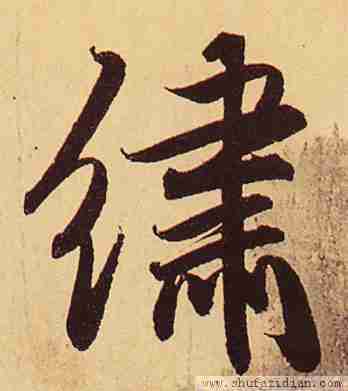 繡
www.shufazidian.com